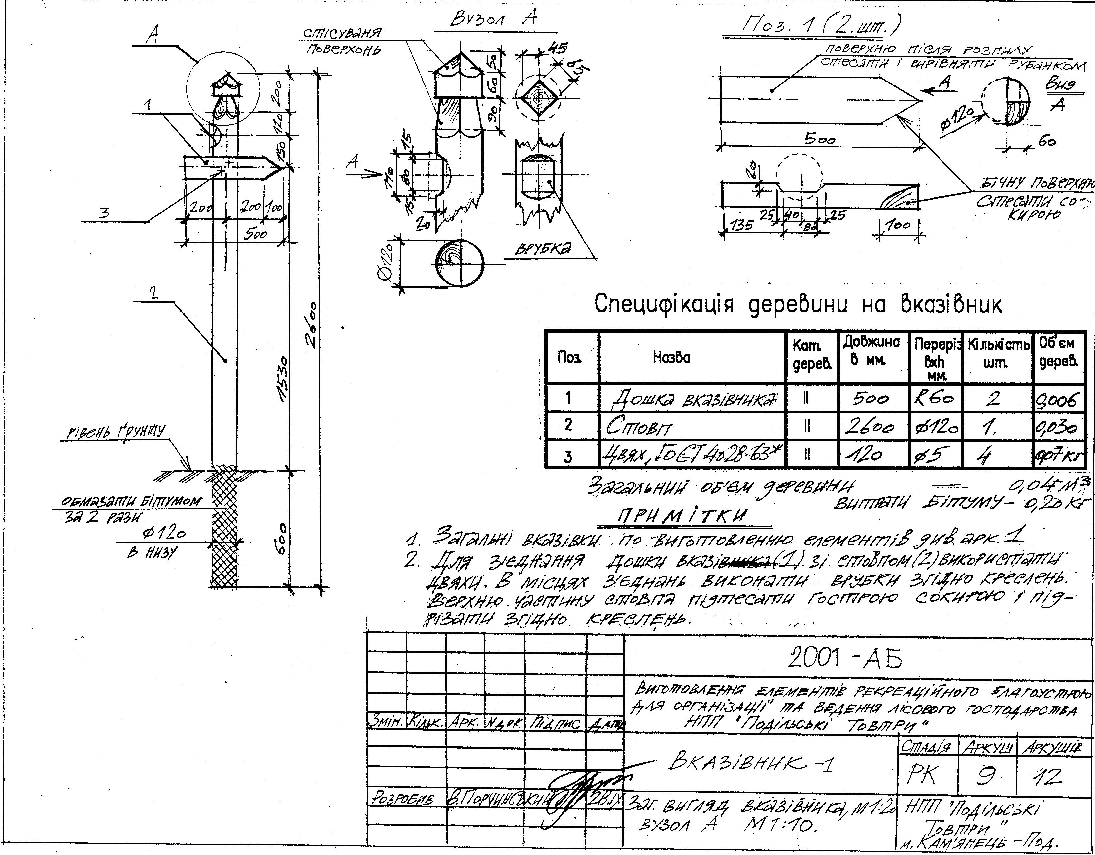 А
1
3
2
200
120
150
200
200
100
500
2600
1530
600
РІВЕНЬ ҐРУНТУ
ОБМАЗАТИ БІТУМОМ
ЗА 2 РАЗИ
Ø120
В НИЗУ
Вузол А
СТІСУВАНЯ
ПОВЕРХОНЬ
50
60
90
45
45
А
15
110
80
15
20
Ø120
ВРУБКА
Поз. 1 (2.шт.)
ПОВЕРХНЮ ПІСЛЯ РОЗПИЛУ
СТЕСАТИ І ВИРІВНЯТИ РУБАНКОМ
А
Вид
А
Ø120
60
500
20
25 40 25
135
80
100
БІЧНУ ПОВЕРХНЮ
СТЕСАТИ СО-
КИРОЮ
Специфікація деревини на вказівник
Поз. Назва Кат. дерев. Довжина в мм. Переріз вхh мм. Кількість шт. Об'єм дерев.
1 Дошка вказівника ІІ 500 R60 2 0,006
2 Стовп ІІ 2600 Ø120 1. 0,030
3 Цвях, ГОСТ 4028-63* ІІ 120 Ø5 4 0,07 кг
Загальний об'єм деревини — 0,04 м3
Витрати бітуму – 0,20 кг
ПРИМІТКИ
1. Загальні вказівки по виготовленню елементів див. арк. 1
2. Для з'єднання дошки вказівника (1) зі стовпом (2) використати
цвяхи. В місцях з'єднань виконати врубки згідно креслень.
Верхню частину стовпа підтесати гострою сокирою і під-
різати згідно креслень.
2001 - АБ
Виготовлення елементів рекреаційного благоустрою
для організації та ведення лісового господарства
НПП "Подільські Товтри"
Змін. Кільк. Арк. №док. Підпис Дата
Вказівник -1
Стадія Аркуш Аркушів
РК 9 12
Розробив
Заг. вигляд вказівника, м 1:20
вузол А М 1:10.
НПП "Подільські
Товтри"
м. Кам'янець - Под.